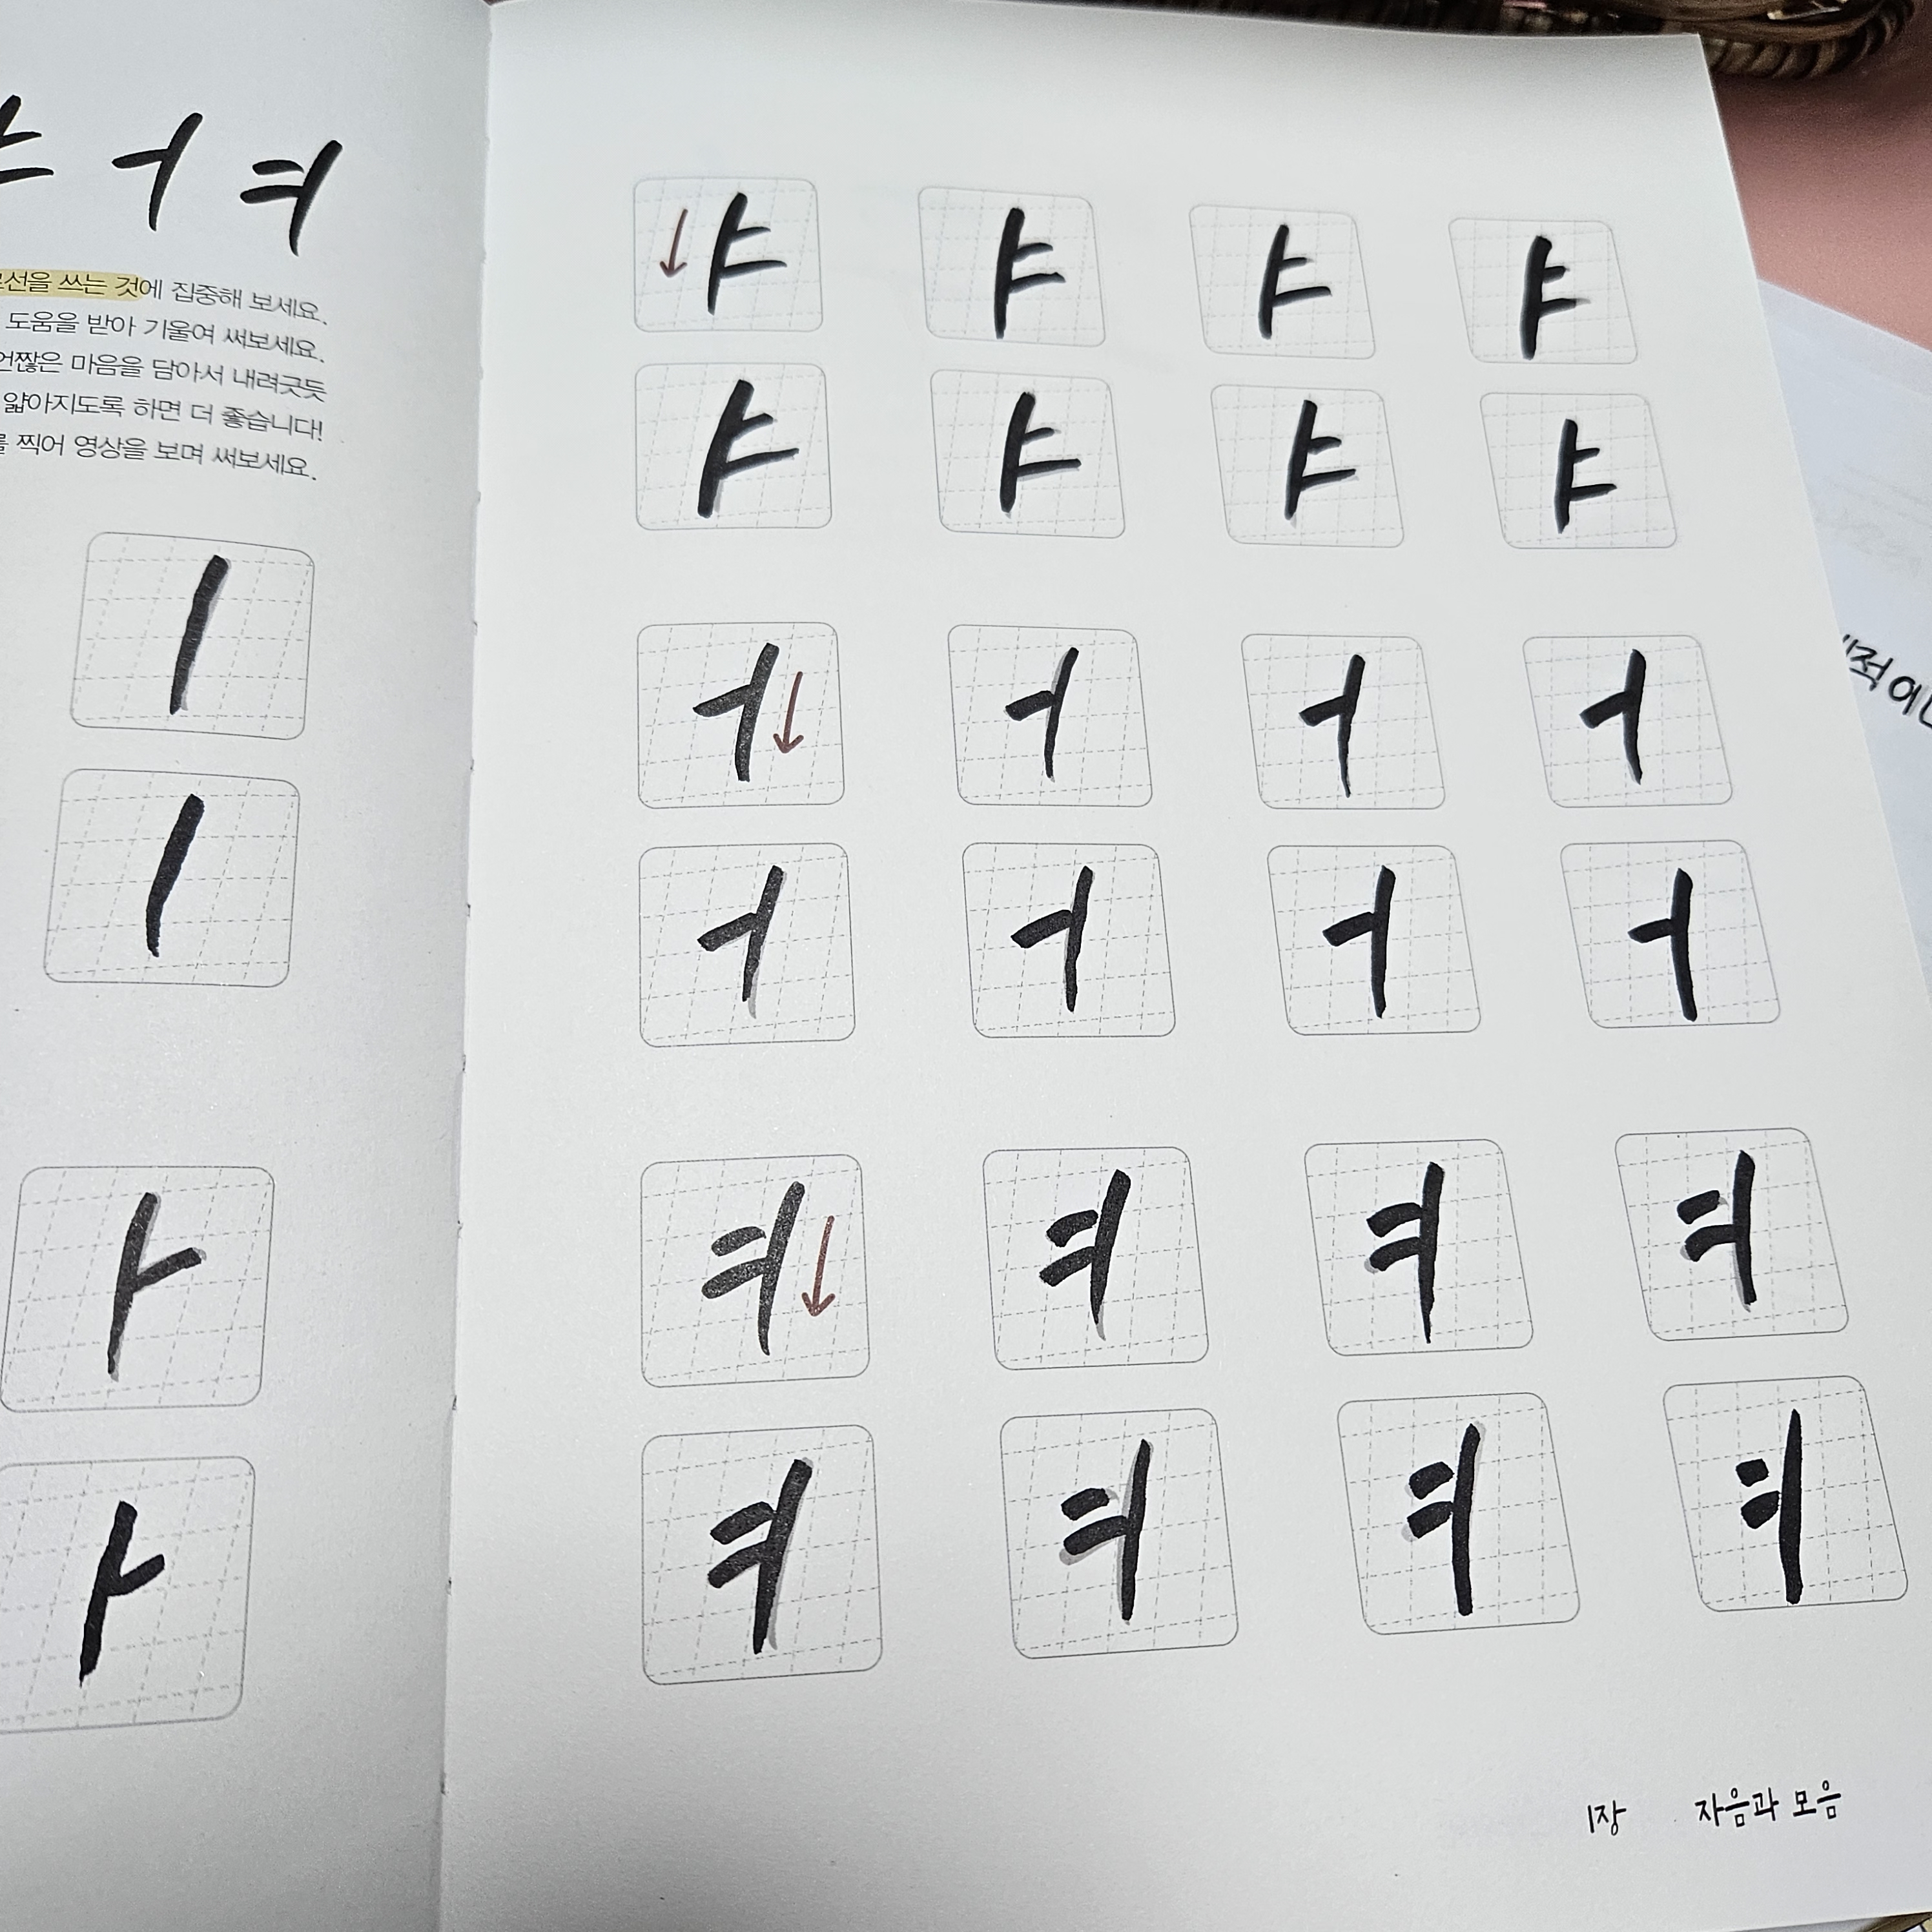 ㅑ ㅓ ㅕ
쓰는 것에 집중해 보세요.
도움을 받아 기울여 써보세요.
언짢은 마음을 담아서 내려긋듯
얇아지도록 하면 더 좋습니다!
찍어 영상을 보며 써보세요.
ㅣ
ㅣ
ㅏ
ㅏ
ㅑ ㅑ ㅑ ㅑ
ㅑ ㅑ ㅑ ㅑ
ㅓ ㅓ ㅓ ㅓ
ㅓ ㅓ ㅓ ㅓ
ㅕ ㅕ ㅕ ㅕ
ㅕ ㅕ ㅕ ㅕ
1장 자음과 모음